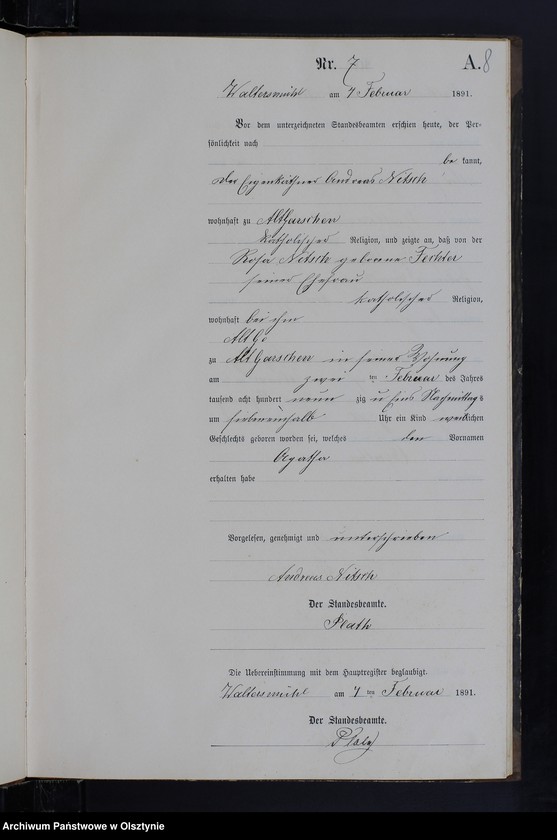 Nr. 7 A. 8
Waltersmühl am 7 Februar 1891.
Vor dem unterzeichneten Standesbeamten erschien heute, der Per-
sönlichkeit nach
be kannt,
der Eigenkäthner Andreas Nitsch
wohnhaft zu Alt Garschen
katholischer Religion, und zeigte an, daß von der
Rosa Nitsch geborene Fechter
seiner Ehefrau
katholischer Religion,
wohnhaft bei ihm
Alt
zu Alt Garschen in seiner Wohnung
am zwei ten Februar des Jahres
tausend acht hundert neun zig u eins Nachmittag s
um siebeneinhalb Uhr ein Kind weiblichen
Geschlechts geboren worden sei, welches den Vornamen
Agatha
erhalten habe
Vorgelesen, genehmigt und unterschrieben
Andreas Nitsch
Der Standesbeamte.
Die Uebereinstimmung mit dem Hauptregister beglaubigt.
Waltersmühl am 7 ten Februar 1891.
Der Standesbeamte.
Archiwum Państwowe w Olsztynie